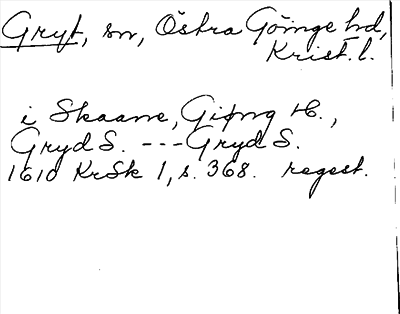 Gryt, sn, Östra Göinge hd,
Krist. l.
i Skaane, Giøng H.,
Gryd S. --- Gryd S.
1610 KrSk 1, s. 368. regest.